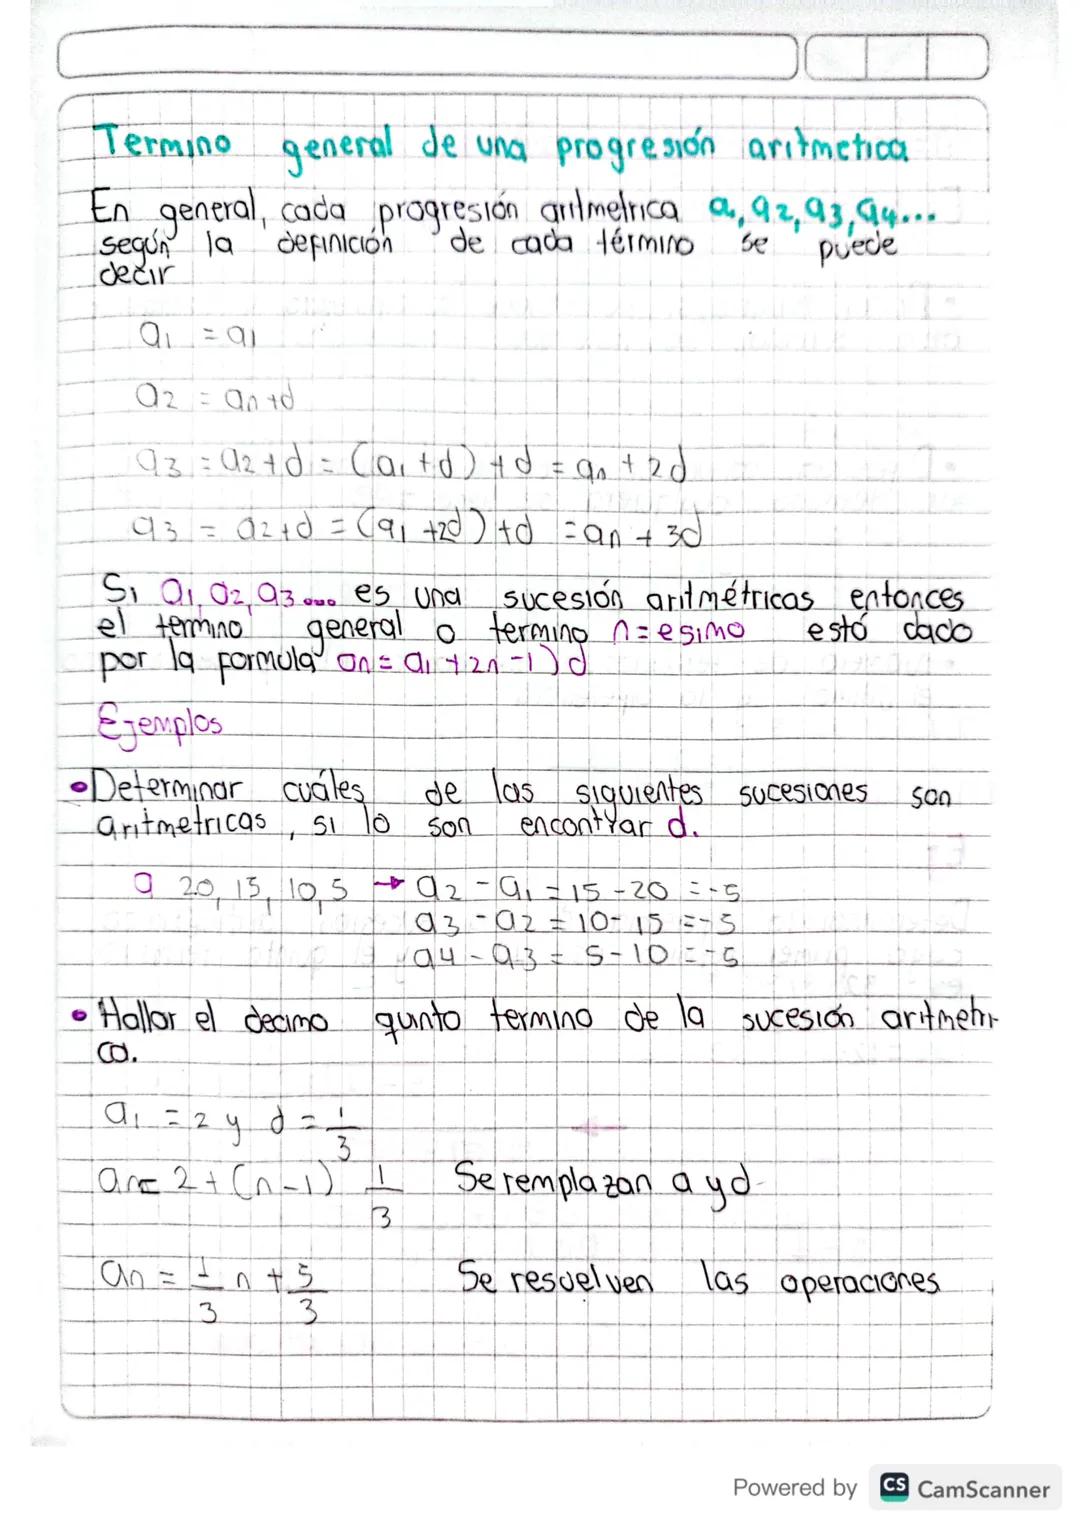 Termino general de una progresión aritmetica
En general, cada progresión aritmetrica a, a2, a3, a4...
según la definición de cada término se puede
decir
a1 = a1
a2 = an+d
a3 = a2+d = (a1+d)+d = an+2d
a3 = a2+d = (a1+2d)+d = an+3d
Si a1, a2, a3.... es una sucesión aritmétricas entonces
el termino general o termino n=esimo está dado
por la formula an = a1+2n-1)d
Ejemplos
•Determinar cuáles de las siguientes sucesiones son
aritmetricas, si lo son encontrar d.
a 20, 15, 10, 5 → a2-a1=15-20=-5
a3-a2=10-15=-5
a4-a3=5-10=-5
•Hallar el decimo quinto termino de la sucesión aritmetri-
ca.
a1=2 y d=1/3
an=2+(n-1) 1/3 Se remplazan a y d
an=1/3 n+5/3 Se resuelven las operaciones
Powered by CS CamScanner